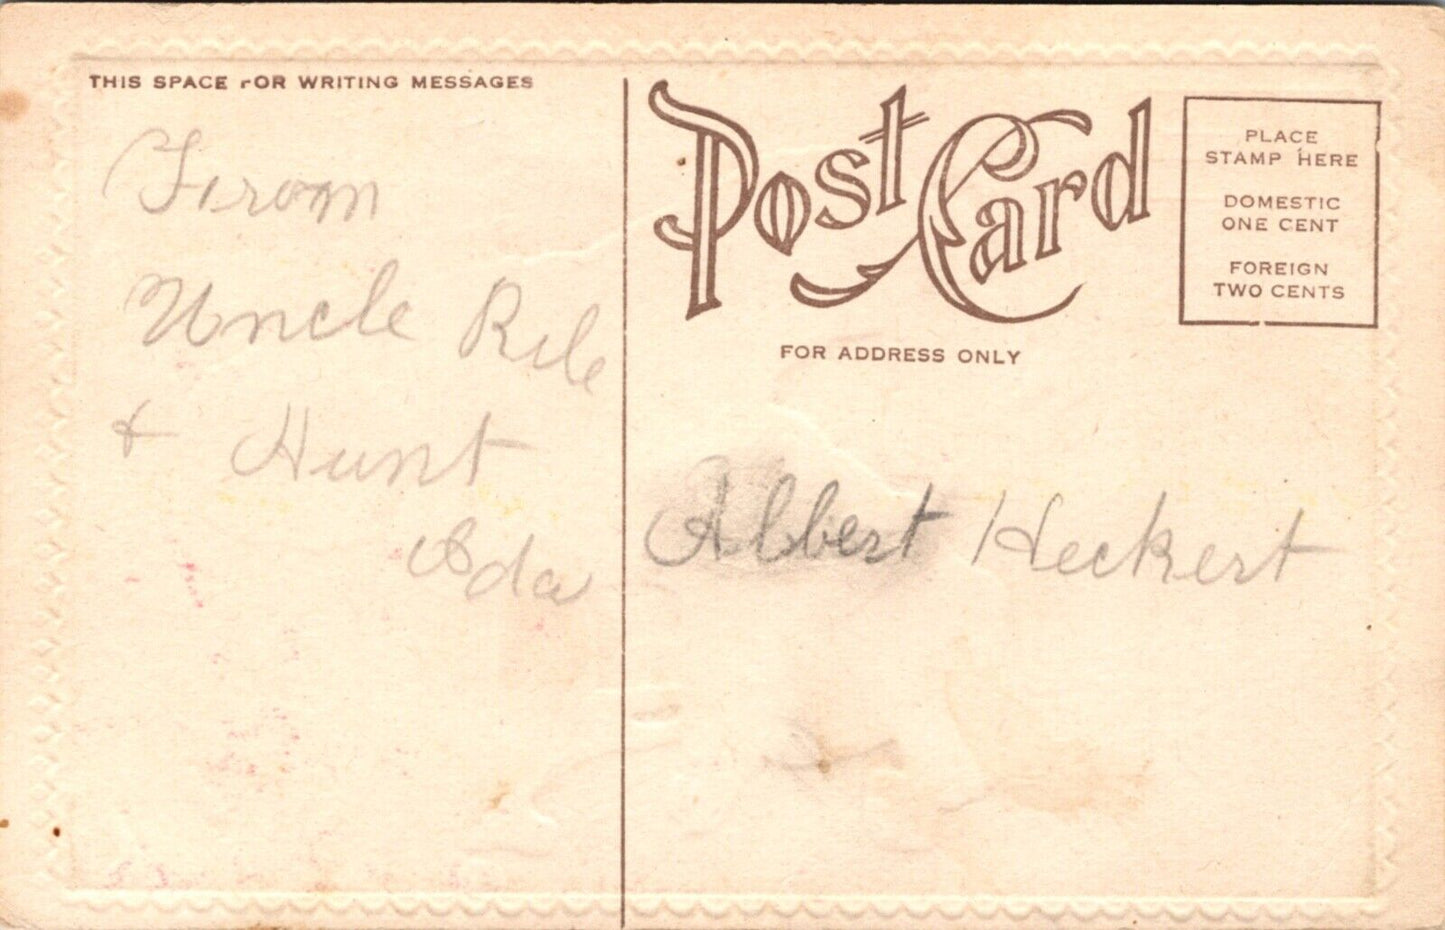 THIS SPACE FOR WRITING MESSAGES
From
Uncle Rile
+ Hunt
Ada
Post Card
FOR ADDRESS ONLY
PLACE
STAMP HERE
DOMESTIC
ONE CENT
FOREIGN
TWO CENTS
Albert Heckert